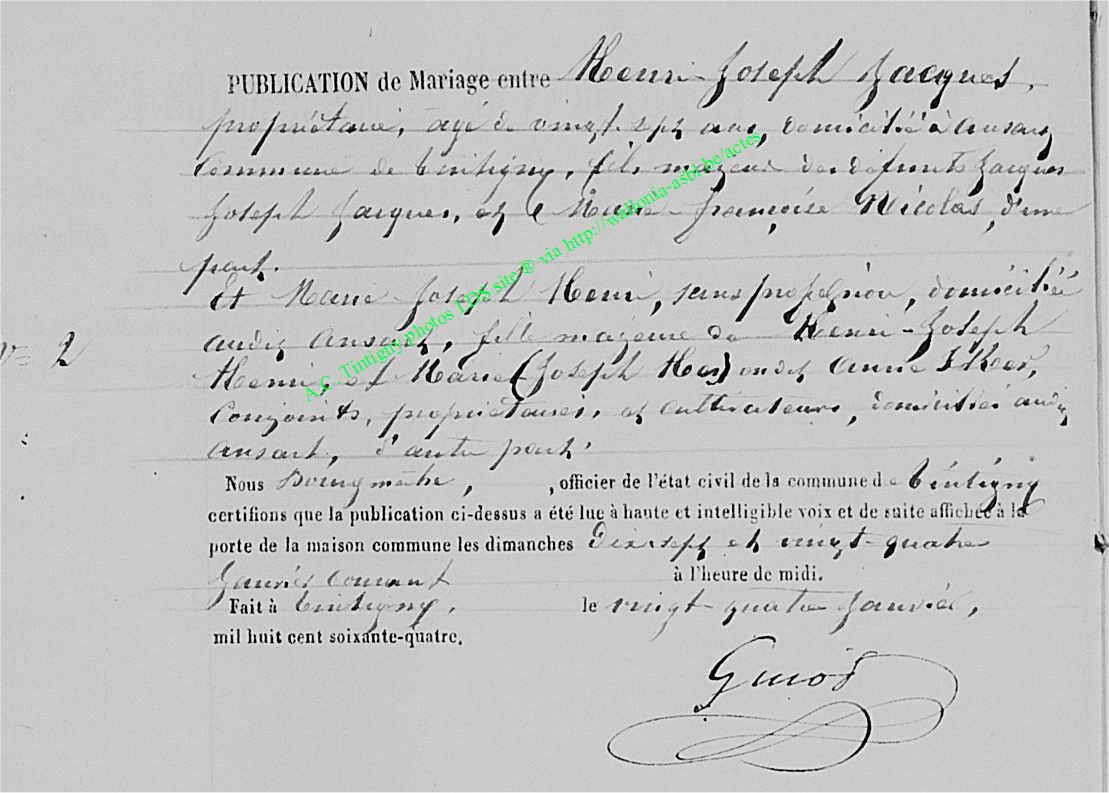 PUBLICATION de Mariage entre Henri-Joseph Jacques,
propriétaire, agé de vingt-sept ans, domicilié à Ansart
Commune de tintigny, fils majeur des défunts Jacques
Joseph Jacques, et Marie-françoise Nicolas, d'une
part.
Et Marie-Joseph Henri, sans profession, domiciliée
audit Ansart, fille majeure de Henri-Joseph
Henri, et Marie (Joseph) ou dit Anne
Conjoints, propriétaires et cultivateurs, domiciliés audit
Ansart, d'autre part.
N° 2
Nous Bourgmestre, , officier de l'état civil de la commune de tintigny
certifions que la publication ci-dessus a été lue à haute et intelligible voix et de suite affichée à la
porte de la maison commune les dimanches Dix-sept et vingt-quatre
Janvier Courant à l'heure de midi.
Fait à tintigny, le vingt-quatre Janvier,
mil huit cent soixante-quatre.
A.C. Tintigny photos LDS site ® via http://wallonia-asbl.be/actes